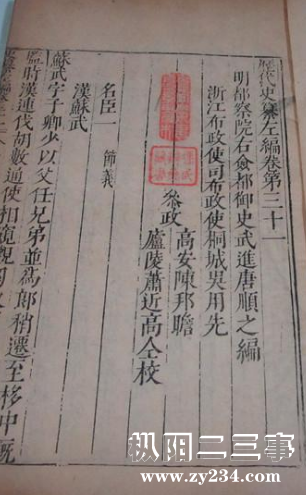 歷代史纂左編卷第三十一
明都察院右僉都御史武進唐順之編
浙江布政使司布政使桐城吳用先
叅政
高安陳邦瞻
廬陵蕭近高仝校
名臣一 節義
漢蘇武
蘇武字子卿少以父任兄弟並爲郎稍遷至栘中厩
監時漢連伐胡數通使相窺觀匈
枞阳二三事
www.zy234.com